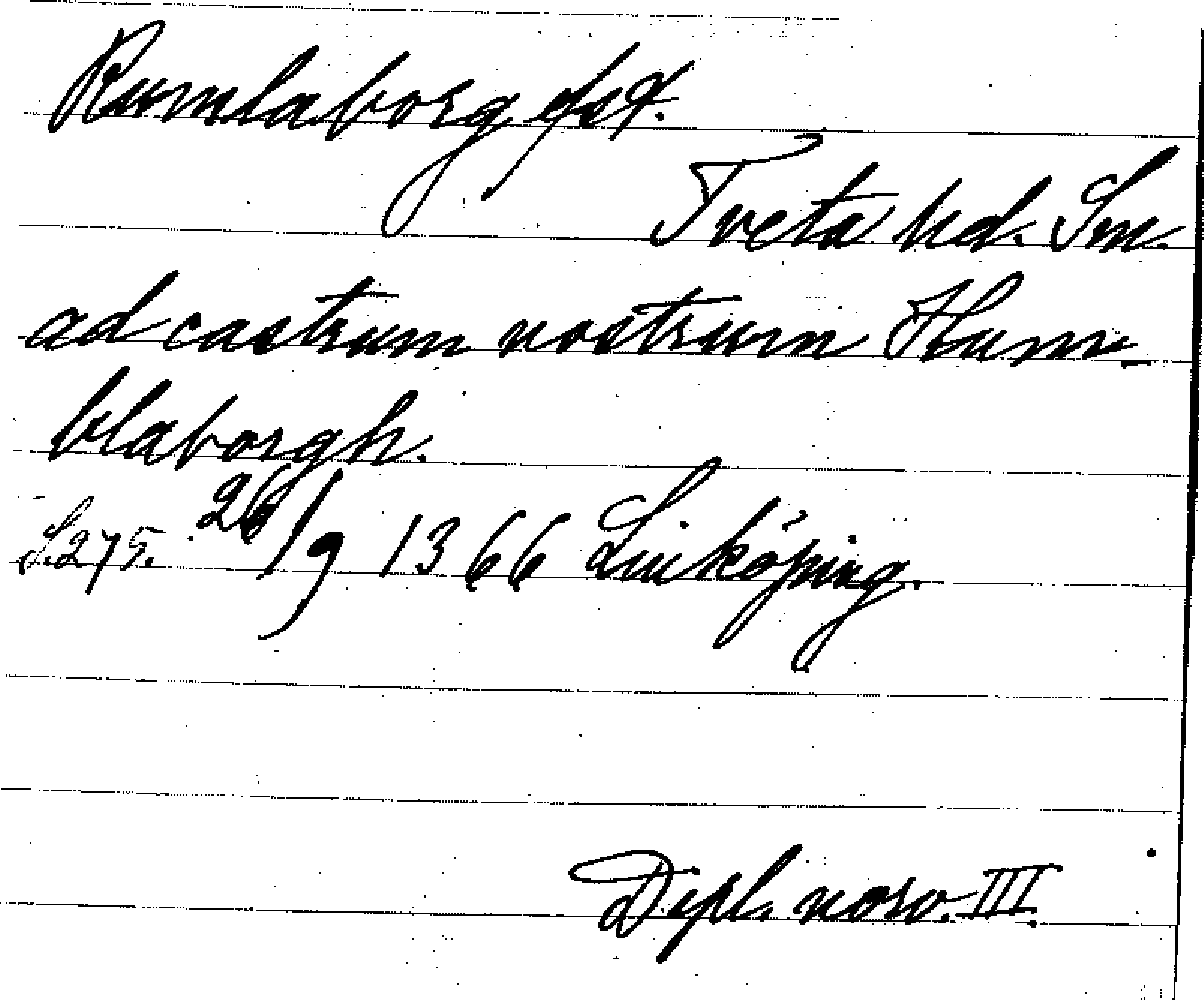 Rumlaborg fst.
Tveta hd. Sm.
ad castrum nostrum Hum-
blaborgh.
S. 275. 26/9 1366 Linköping.
Dipl. norv. III.